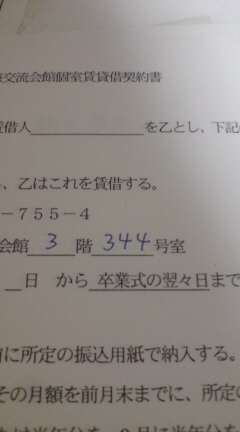 交流会館個室賃貸借契約書
賃借人 を乙とし、下記
、乙はこれを賃借する。
－７５５－４
会館 3 階 344 号室
日 から 卒業式の翌々日まで
に所定の振込用紙で納入する。
その月額を前月末までに、所定の